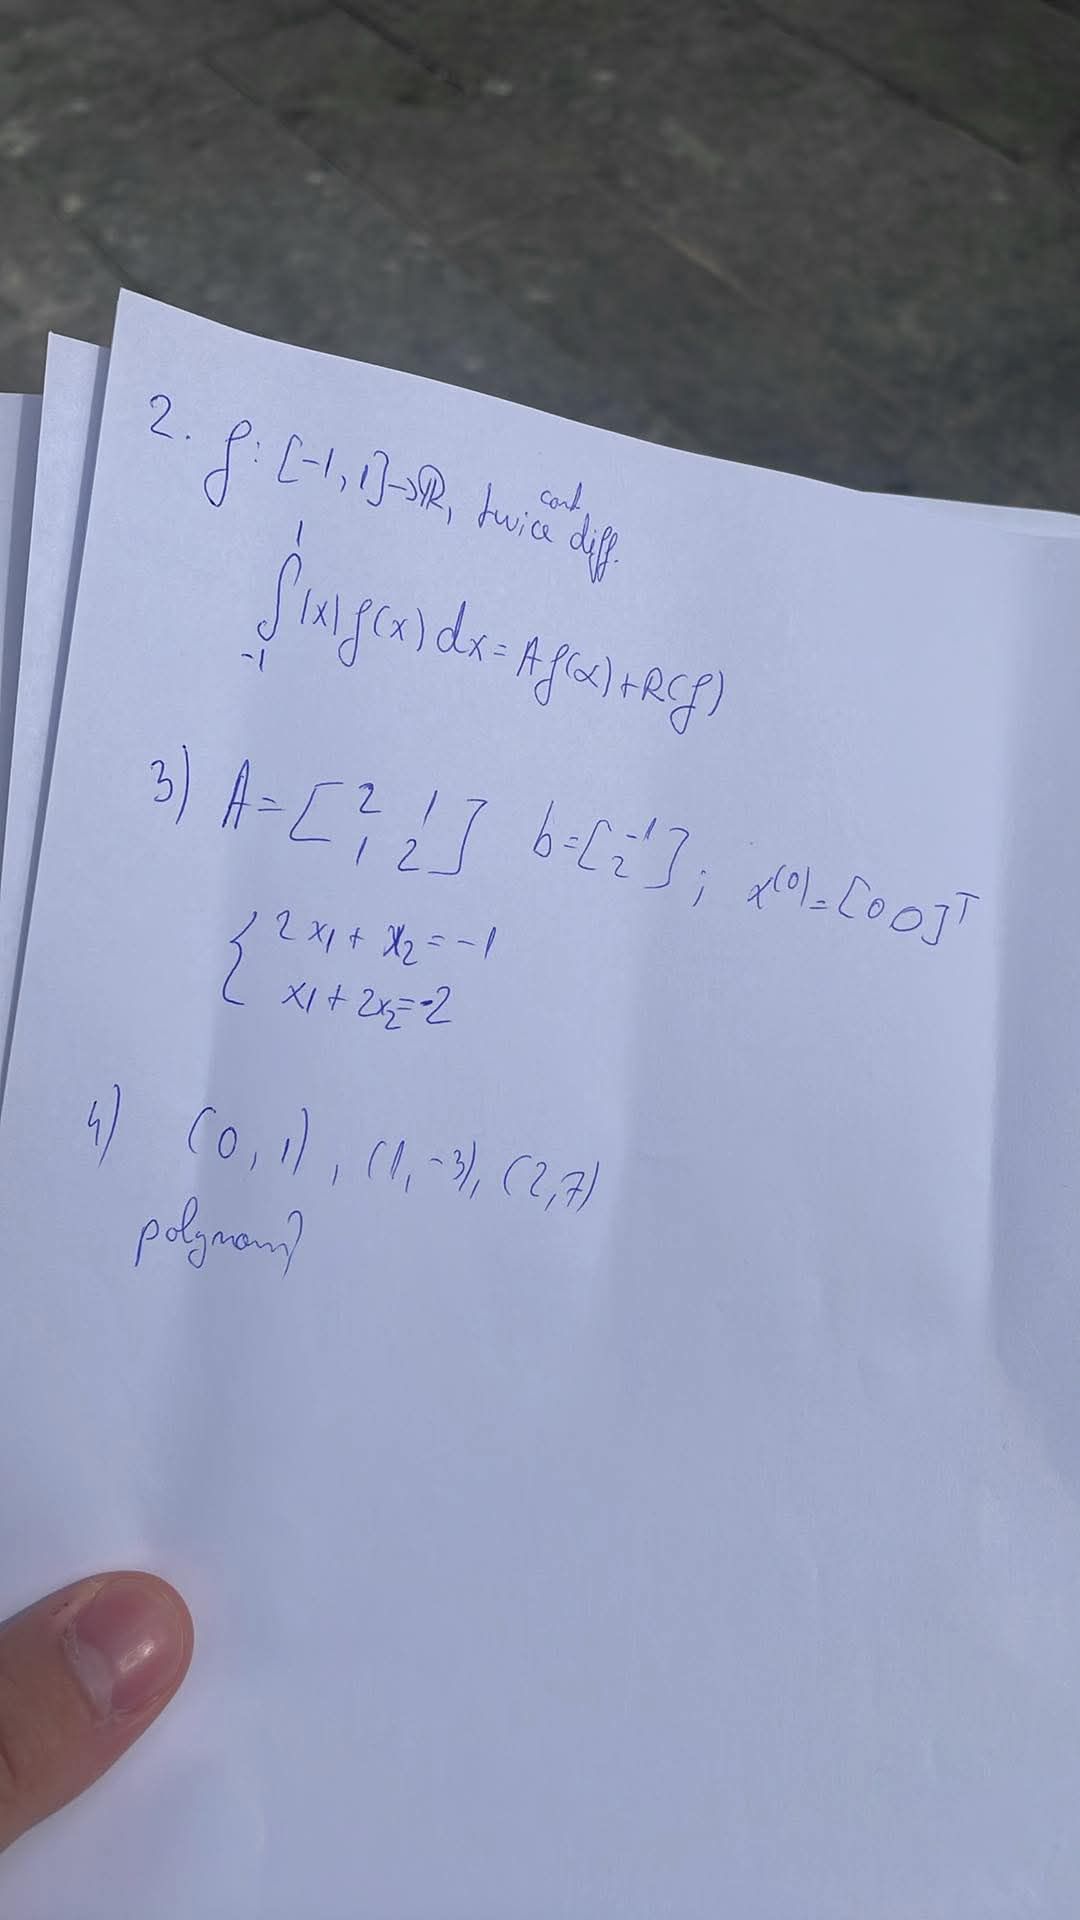 2. f: [-1, 1] → ℝ, twice cont diff.
∫_{-1}^{1} |x| f(x) dx = A f(α) + R(f)
3) A = [2 1; 1 2] b = [-1; 2]; x^(0) = [0 0]^T
{ 2x₁ + x₂ = -1
x₁ + 2x₂ = -2
4) (0, 1), (1, -3), (2, 7)
polynom?